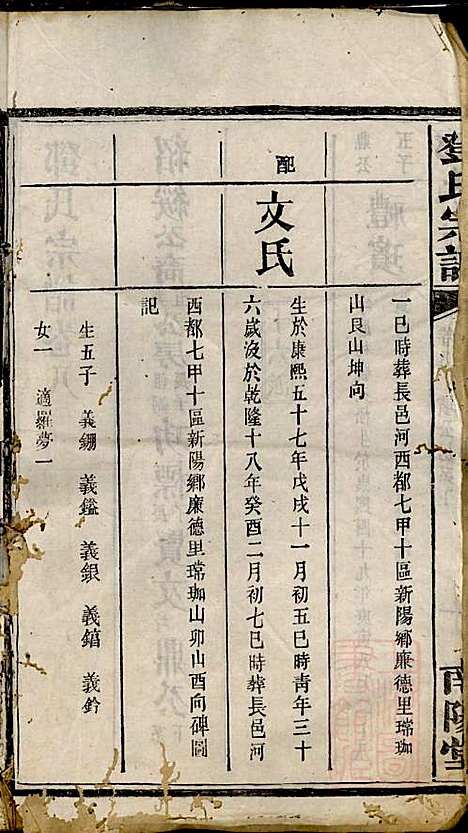 鄧氏宗譜
南陽堂
一巳時葬長邑河西都七甲十區新陽鄉廉德里瑺珈
山艮山坤向
配
文氏
生於康熙五十七年戊戌十一月初五巳時青年三十
六歲沒於乾隆十八年癸酉二月初七巳時葬長邑河
西都七甲十區新陽鄉廉德里瑺珈山卯山酉向碑圖
記
生五子 義鎙 義鎰 義銀 義錧 義鈐
女一 適羅夢一